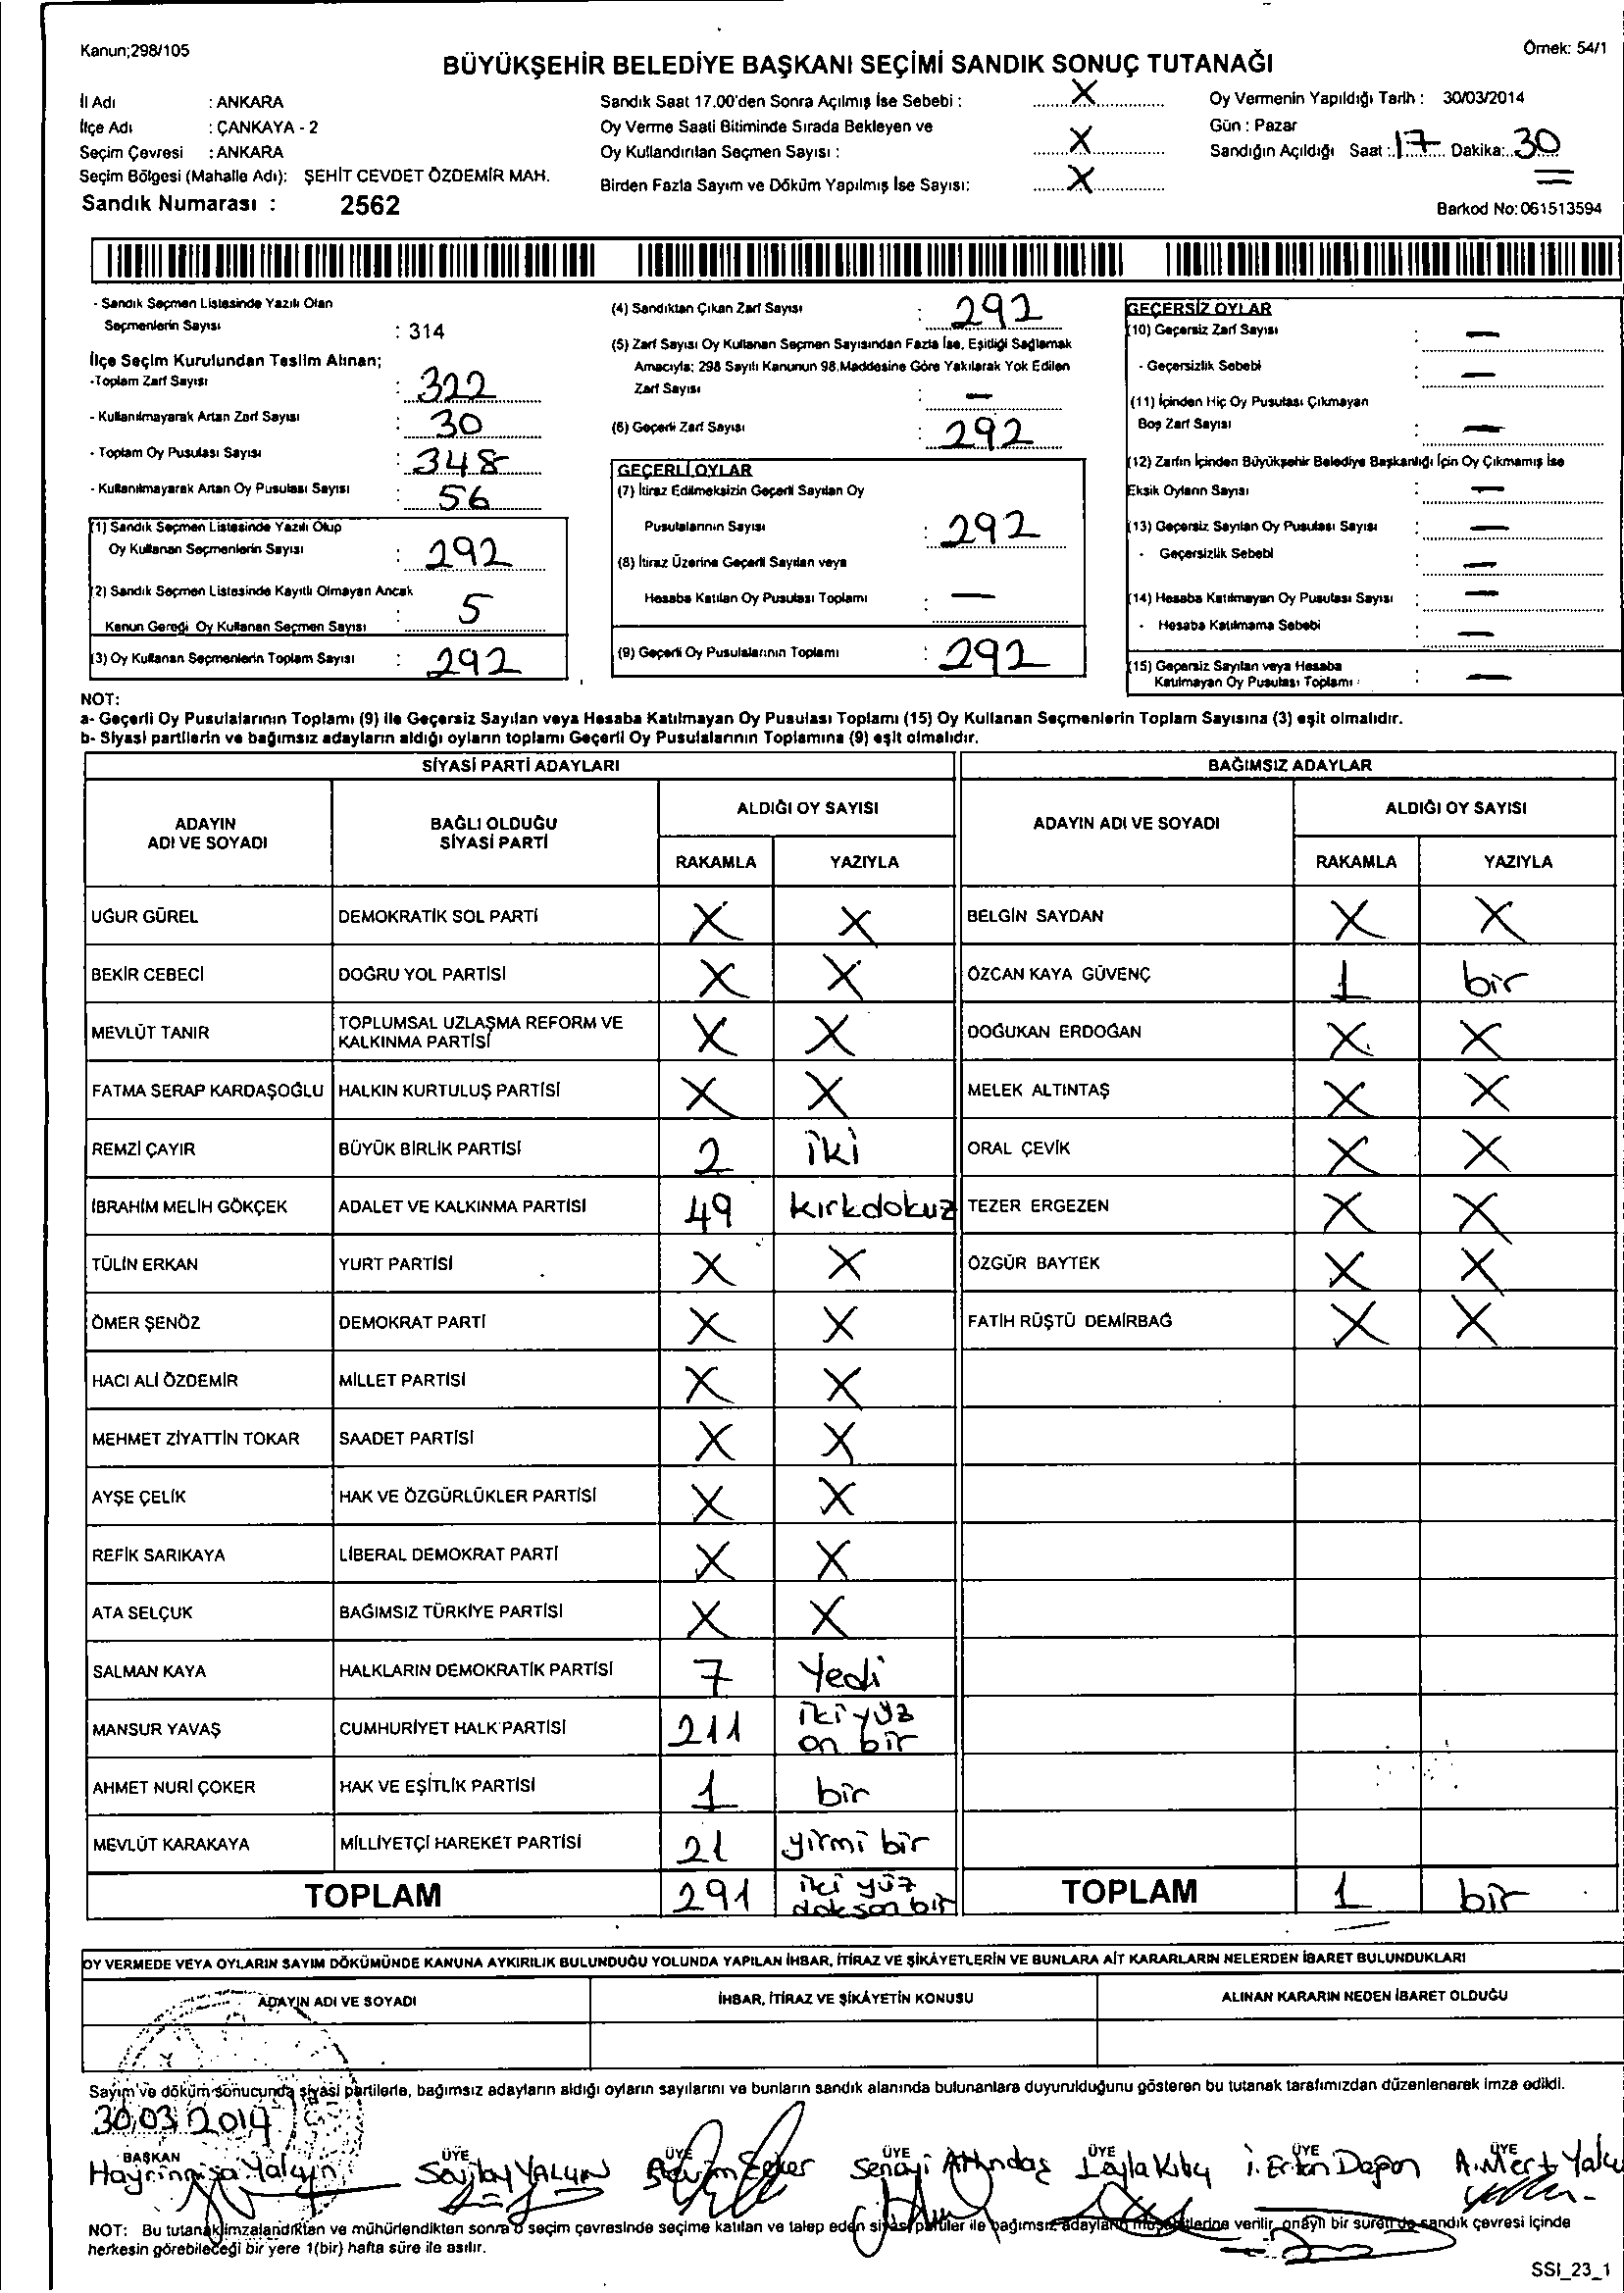 Kanun;298/105
Örnek: 54/1
BÜYÜKŞEHİR BELEDİYE BAŞKANI SEÇİMİ SANDIK SONUÇ TUTANAĞI
İl Adı : ANKARA
İlçe Adı : ÇANKAYA - 2
Seçim Çevresi : ANKARA
Seçim Bölgesi (Mahalle Adı): ŞEHİT CEVDET ÖZDEMİR MAH.
Sandık Numarası : 2562
Sandık Saat 17.00'den Sonra Açılmış İse Sebebi : X
Oy Verme Saati Bitiminde Sırada Bekleyen ve
Oy Kullandırılan Seçmen Sayısı : X
Birden Fazla Sayım ve Döküm Yapılmış İse Sayısı: X
Oy Vermenin Yapıldığı Tarih : 30/03/2014
Gün : Pazar
Sandığın Açıldığı Saat : 17 Dakika: 30
Barkod No: 061513594
- Sandık Seçmen Listesinde Yazılı Olan
Seçmenlerin Sayısı : 314
İlçe Seçim Kurulundan Teslim Alınan;
-Toplam Zarf Sayısı : 322
- Kullanılmayarak Artan Zarf Sayısı : 30
- Toplam Oy Pusulası Sayısı : 348
- Kullanılmayarak Artan Oy Pusulası Sayısı : 56
(1) Sandık Seçmen Listesinde Yazılı Olup
Oy Kullanan Seçmenlerin Sayısı : 292
(2) Sandık Seçmen Listesinde Kayıtlı Olmayan Ancak
Kanun Gereği Oy Kullanan Seçmen Sayısı : 5
(3) Oy Kullanan Seçmenlerin Toplam Sayısı : 292
(4) Sandıktan Çıkan Zarf Sayısı : 292
(5) Zarf Sayısı Oy Kullanan Seçmen Sayısından Fazla İse, Eşitliği Sağlamak
Amacıyla; 298 Sayılı Kanunun 98.Maddesine Göre Yakılarak Yok Edilen
Zarf Sayısı : —
(6) Geçerli Zarf Sayısı : 292
GEÇERLİ OYLAR
(7) İtiraz Edilmeksizin Geçerli Sayılan Oy
Pusulalarının Sayısı : 292
(8) İtiraz Üzerine Geçerli Sayılan veya
Hesaba Katılan Oy Pusulası Toplamı : —
(9) Geçerli Oy Pusulalarının Toplamı : 292
GEÇERSİZ OYLAR
(10) Geçersiz Zarf Sayısı : —
- Geçersizlik Sebebi : —
(11) İçinden Hiç Oy Pusulası Çıkmayan
Boş Zarf Sayısı : —
(12) Zarfın İçinden Büyükşehir Belediye Başkanlığı İçin Oy Çıkmamış İse
Eksik Oyların Sayısı : —
(13) Geçersiz Sayılan Oy Pusulası Sayısı : —
- Geçersizlik Sebebi : —
(14) Hesaba Katılmayan Oy Pusulası Sayısı : —
- Hesaba Katılmama Sebebi : —
(15) Geçersiz Sayılan veya Hesaba
Katılmayan Oy Pusulası Toplamı : —
NOT:
a- Geçerli Oy Pusulalarının Toplamı (9) ile Geçersiz Sayılan veya Hesaba Katılmayan Oy Pusulası Toplamı (15) Oy Kullanan Seçmenlerin Toplam Sayısına (3) eşit olmalıdır.
b- Siyasi partilerin ve bağımsız adayların aldığı oyların toplamı Geçerli Oy Pusulalarının Toplamına (9) eşit olmalıdır.
SİYASİ PARTİ ADAYLARI
ADAYIN ADI VE SOYADI BAĞLI OLDUĞU SİYASİ PARTİ ALDIĞI OY SAYISI
RAKAMLA YAZIYLA
UĞUR GÜREL DEMOKRATİK SOL PARTİ X X
BEKİR CEBECİ DOĞRU YOL PARTİSİ X X
MEVLÜT TANIR TOPLUMSAL UZLAŞMA REFORM VE KALKINMA PARTİSİ X X
FATMA SERAP KARDAŞOĞLU HALKIN KURTULUŞ PARTİSİ X X
REMZİ ÇAYIR BÜYÜK BİRLİK PARTİSİ 2 iki
İBRAHİM MELİH GÖKÇEK ADALET VE KALKINMA PARTİSİ 49 kırkdokuz
TÜLİN ERKAN YURT PARTİSİ X X
ÖMER ŞENÖZ DEMOKRAT PARTİ X X
HACI ALİ ÖZDEMİR MİLLET PARTİSİ X X
MEHMET ZİYATTİN TOKAR SAADET PARTİSİ X X
AYŞE ÇELİK HAK VE ÖZGÜRLÜKLER PARTİSİ X X
REFİK SARIKAYA LİBERAL DEMOKRAT PARTİ X X
ATA SELÇUK BAĞIMSIZ TÜRKİYE PARTİSİ X X
SALMAN KAYA HALKLARIN DEMOKRATİK PARTİSİ 7 Yedi
MANSUR YAVAŞ CUMHURİYET HALK PARTİSİ 211 iki yüz on bir
AHMET NURİ ÇOKER HAK VE EŞİTLİK PARTİSİ 1 bir
MEVLÜT KARAKAYA MİLLİYETÇİ HAREKET PARTİSİ 21 yirmi bir
TOPLAM 291 iki yüz doksan bir
BAĞIMSIZ ADAYLAR
ADAYIN ADI VE SOYADI ALDIĞI OY SAYISI
RAKAMLA YAZIYLA
BELGİN SAYDAN X X
ÖZCAN KAYA GÜVENÇ 1 bir
DOĞUKAN ERDOĞAN X X
MELEK ALTINTAŞ X X
ORAL ÇEVİK X X
TEZER ERGEZEN X X
ÖZGÜR BAYTEK X X
FATİH RÜŞTÜ DEMİRBAĞ X X
TOPLAM 1 bir
OY VERMEDE VEYA OYLARIN SAYIM DÖKÜMÜNDE KANUNA AYKIRILIK BULUNDUĞU YOLUNDA YAPILAN İHBAR, İTİRAZ VE ŞİKÂYETLERİN VE BUNLARA AİT KARARLARIN NELERDEN İBARET BULUNDUKLARI
ADAYIN ADI VE SOYADI İHBAR, İTİRAZ VE ŞİKÂYETİN KONUSU ALINAN KARARIN NEDEN İBARET OLDUĞU
Sayım ve döküm sonucunda siyasi partilerle, bağımsız adayların aldığı oyların sayılarını ve bunların sandık alanında bulunanlara duyurulduğunu gösteren bu tutanak tarafımızdan düzenlenerek imza edildi.
30.03.2014
BAŞKAN ÜYE ÜYE ÜYE ÜYE ÜYE ÜYE
Yalçın YALÇIN Senayi Leyla A.Mert
NOT: Bu tutanak imzalandıktan ve mühürlendikten sonra o seçim çevresinde seçime katılan ve talep eden siyasi partiler ile bağımsız adayların müşahitlerine verilir, onaylı bir sureti de sandık çevresi içinde
herkesin görebileceği bir yere 1(bir) hafta süre ile asılır.
SSI_23_1